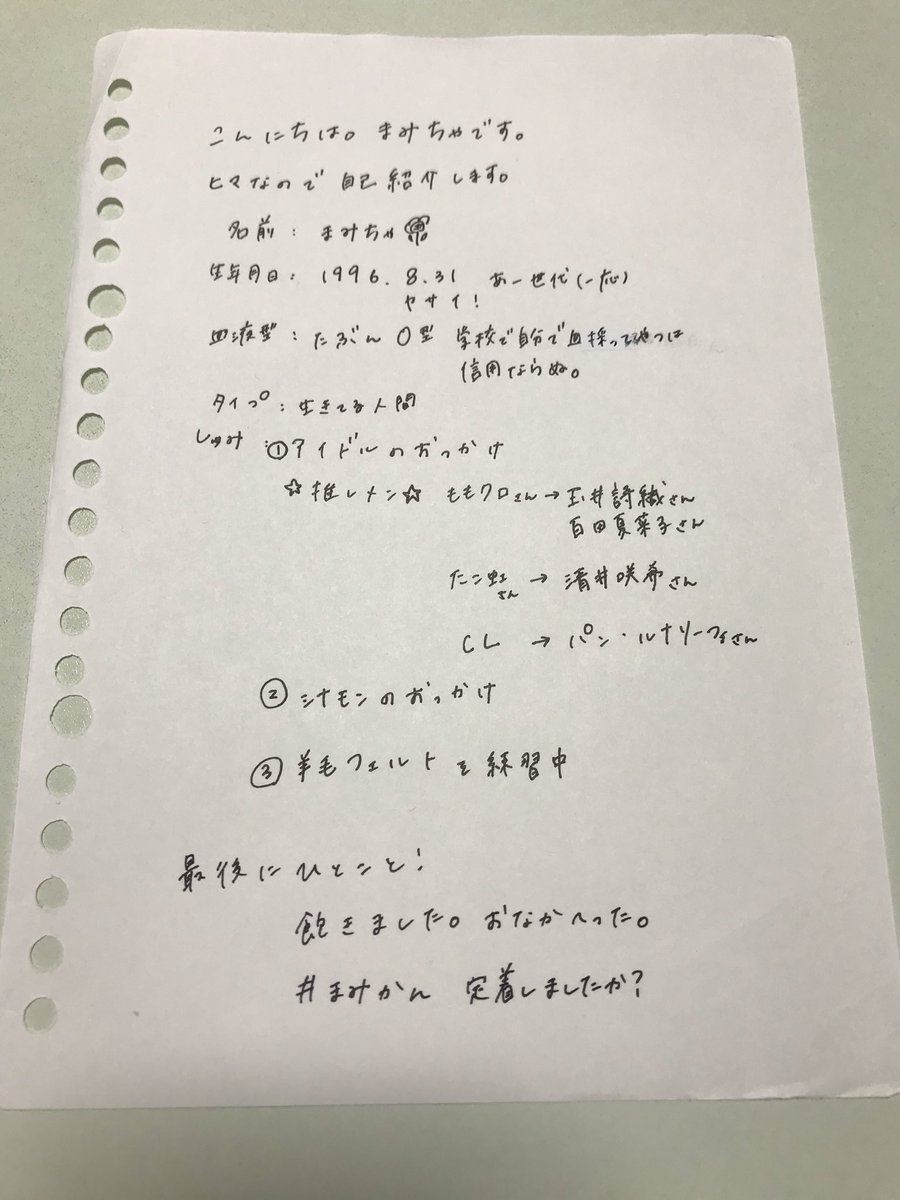 こんにちは。まみちゃです。
ヒマなので自己紹介します。
名前:まみちゃ
生年月日:1996.8.31 あー世代(一応)
ヤサイ!
血液型:たぶんO型 学校で自分で血採ってやつは
信用ならぬ。
タイプ:生きてる人間
しゅみ:①アイドルのおっかけ
☆推しメン☆ ももクロさん→玉井詩織さん
百田夏菜子さん
たこ虹さん→清井咲希さん
CL→パン・ルナリーフィさん
②シナモンのおっかけ
③羊毛フェルトを練習中
最後にひとこと!
飽きました。おなかへった。
#まみかん 定着しましたか?